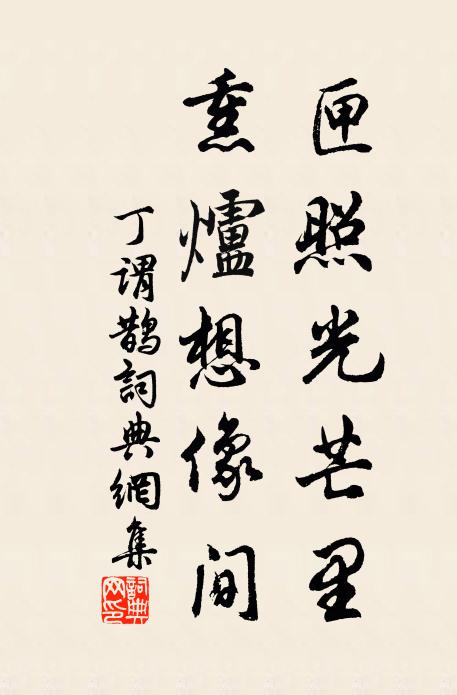 匣照光芒里
熏爐想像間
丁謂鵲詞典網集
詞典網印